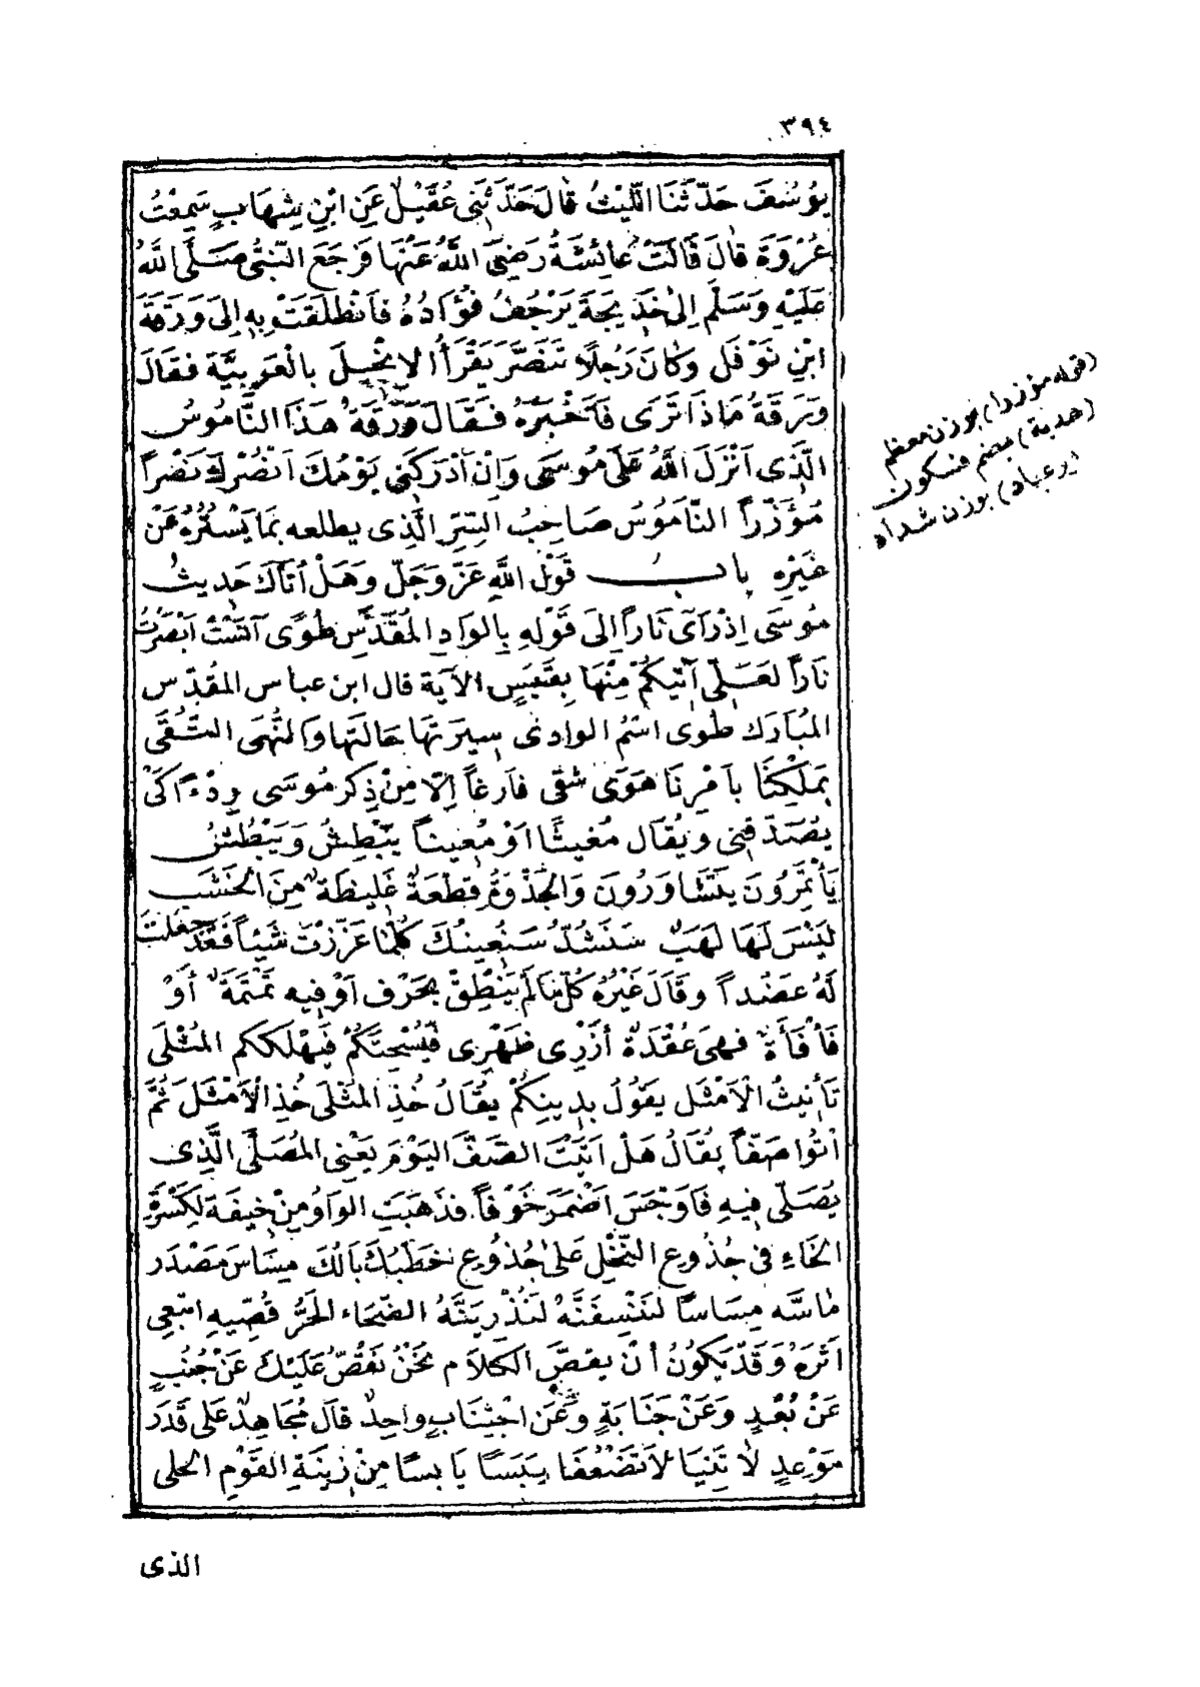 ٣٩٤
يُوسُفَ حَدَّثَنَا اللَّيْثُ قَالَ حَدَّثَنِى عُقَيْلٌ عَنِ ابْنِ شِهَابٍ سَمِعْتُ
عُرْوَةَ قَالَ قَالَتْ عَائِشَةُ رَضِىَ اللَّهُ عَنْهَا فَرَجَعَ النَّبِىُّ صَلَّى اللَّهُ
عَلَيْهِ وَسَلَّمَ إِلَى خَدِيجَةَ يَرْجُفُ فُؤَادُهُ فَانْطَلَقَتْ بِهِ إِلَى وَرَقَةَ
ابْنِ نَوْفَلٍ وَكَانَ رَجُلًا تَنَصَّرَ يَقْرَأُ الإِنْجِيلَ بِالْعَرَبِيَّةِ فَقَالَ
وَرَقَةُ مَاذَا تَرَى فَأَخْبَرَهُ فَقَالَ وَرَقَةُ هَذَا النَّامُوسُ
الَّذِى أَنْزَلَ اللَّهُ عَلَى مُوسَى وَإِنْ أَدْرَكَنِى يَوْمُكَ أَنْصُرْكَ نَصْراً
مُؤَزَّراً النَّامُوسُ صَاحِبُ السِّرِّ الَّذِى يطلعه بِمَا يَسْتُرُهُ عَنْ
غَيْرِهِ بابُ قَوْلِ اللَّهِ عَزَّ وَجَلَّ وَهَلْ أَتَاكَ حَدِيثُ
مُوسَى إِذْ رَأَى نَاراً إِلَى قَوْلِهِ بِالْوَادِ المُقَدَّسِ طُوًى آنَسْتُ أَبْصَرْتُ
نَاراً لَعَلِّى آتِيكُمْ مِنْهَا بِقَبَسٍ الآيَةَ قال ابن عباس المُقَدَّس
المُبَارَك طُوًى اسْمُ الوادى سِيرَتَهَا حَالَتَهَا وَالنُّهَى التُّقَى
بِمَلْكِنَا بِأَمْرِنَا هَوَى شقى فَارِغاً إِلَّا مِنْ ذِكْرِ مُوسَى رِدْءًا كَىْ
يُصَدِّقَنِى وَيُقَال مُغِيثًا أَوْ مُعِيناً يَبْطِشُ وَيَبْطُشُ
يَأْتَمِرُونَ يَتَشَاوَرُونَ وَالجِذْوَةُ قِطْعَةٌ غَلِيظَةٌ مِنَ الخَشَبِ
لَيْسَ لَهَا لَهَبٌ سَنَشُدُّ سَنُعِينُكَ كُلَّمَا عَزَّزْتَ شَيْئاً فَقَدْ جَعَلْتَ
لَهُ عَضُداً وَقَالَ غَيْرُهُ كُلَّمَا لَمْ يَنْطِقْ بِحَرْفٍ أَوْ فِيهِ تَمْتَمَةٌ أَوْ
فَأْفَأَةٌ فَهِىَ عُقْدَةٌ أَزْرِى ظَهْرِى فَيُسْحِتَكُمْ فَيُهْلِكَكُم المُثْلَى
تَأْنِيثُ الأَمْثَلِ يَقُولُ بِدِينِكُمْ يُقَالُ خُذِ المُثْلَى خُذِ الأَمْثَلَ ثُمَّ
ائْتُوا صَفّاً يُقَالُ هَلْ أَتَيْتَ الصَّفَّ اليَوْمَ يَعْنِى المُصَلَّى الَّذِى
يُصَلَّى فِيهِ فَأَوْجَسَ أَضْمَرَ خَوْفاً فَذَهَبَتِ الوَاوُ مِنْ خِيفَةً لِكَسْرَةِ
الخَاءِ فِى جُذُوعِ النَّخْلِ عَلَى جُذُوعِ خَطْبُكَ بَالُكَ مِسَاسَ مَصْدَر
مَاسَّه مِسَاساً لَنَنْسِفَنَّهُ لَنَذْرِيَنَّهُ الضَّحَاء الحَرُّ قُصِّيهِ اتْبَعِى
أَثَرَهُ وَقَدْ يَكُونُ أَنْ يَقُصَّ الكَلَامَ نَحْنُ نَقُصُّ عَلَيْكَ عَنْ جُنُبٍ
عَنْ بُعْدٍ وَعَنْ جَنَابَةٍ وَعَنِ اجْتِنَابٍ وَاحِدٌ قَالَ مُجَاهِدٌ عَلَى قَدَر
مَوْعِدٍ لَا تَنِيَا لَا تَضْعُفَا يَبَسًا يَابِسًا مِنْ زِينَةِ القَوْمِ الحلى
الذى
(قوله مؤزرا) بوزن معظم
(هدبة) بضم فسكون
(عباد) بوزن شداد